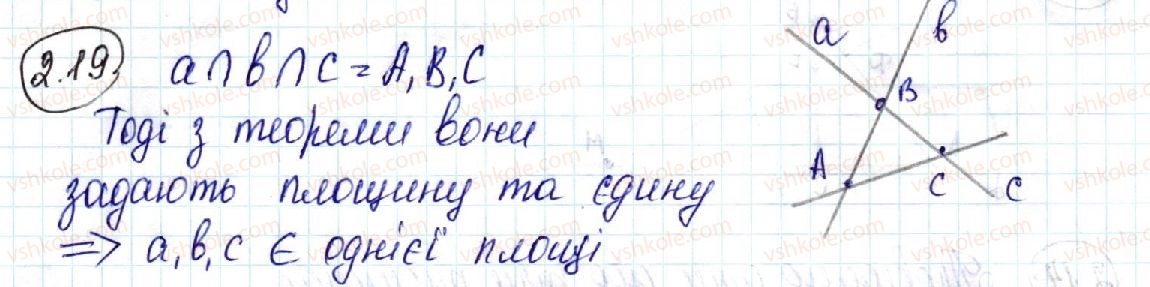 2.19. a∩b∩c = A, B, C
Тоді з теореми вони
задають площину та єдину
=> a, b, c Є однієї площі
a
b
B
A
C
c